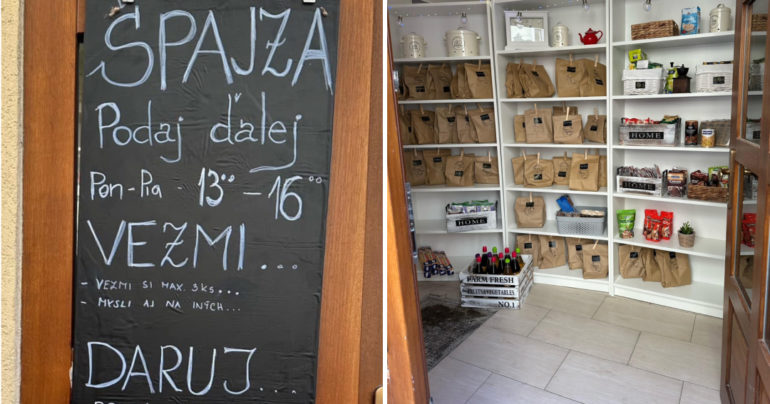 SPAJZA
Podaj ďalej
Pon-Pia - 13°° - 16°°
VEZMI...
- VEZMI SI MAX. 3KS...
- MYSLI AJ NA INÝCH...
DARUJ...
HOME
HOME
HOME
FARM FRESH
FRUITS & VEGETABLES
NO.1